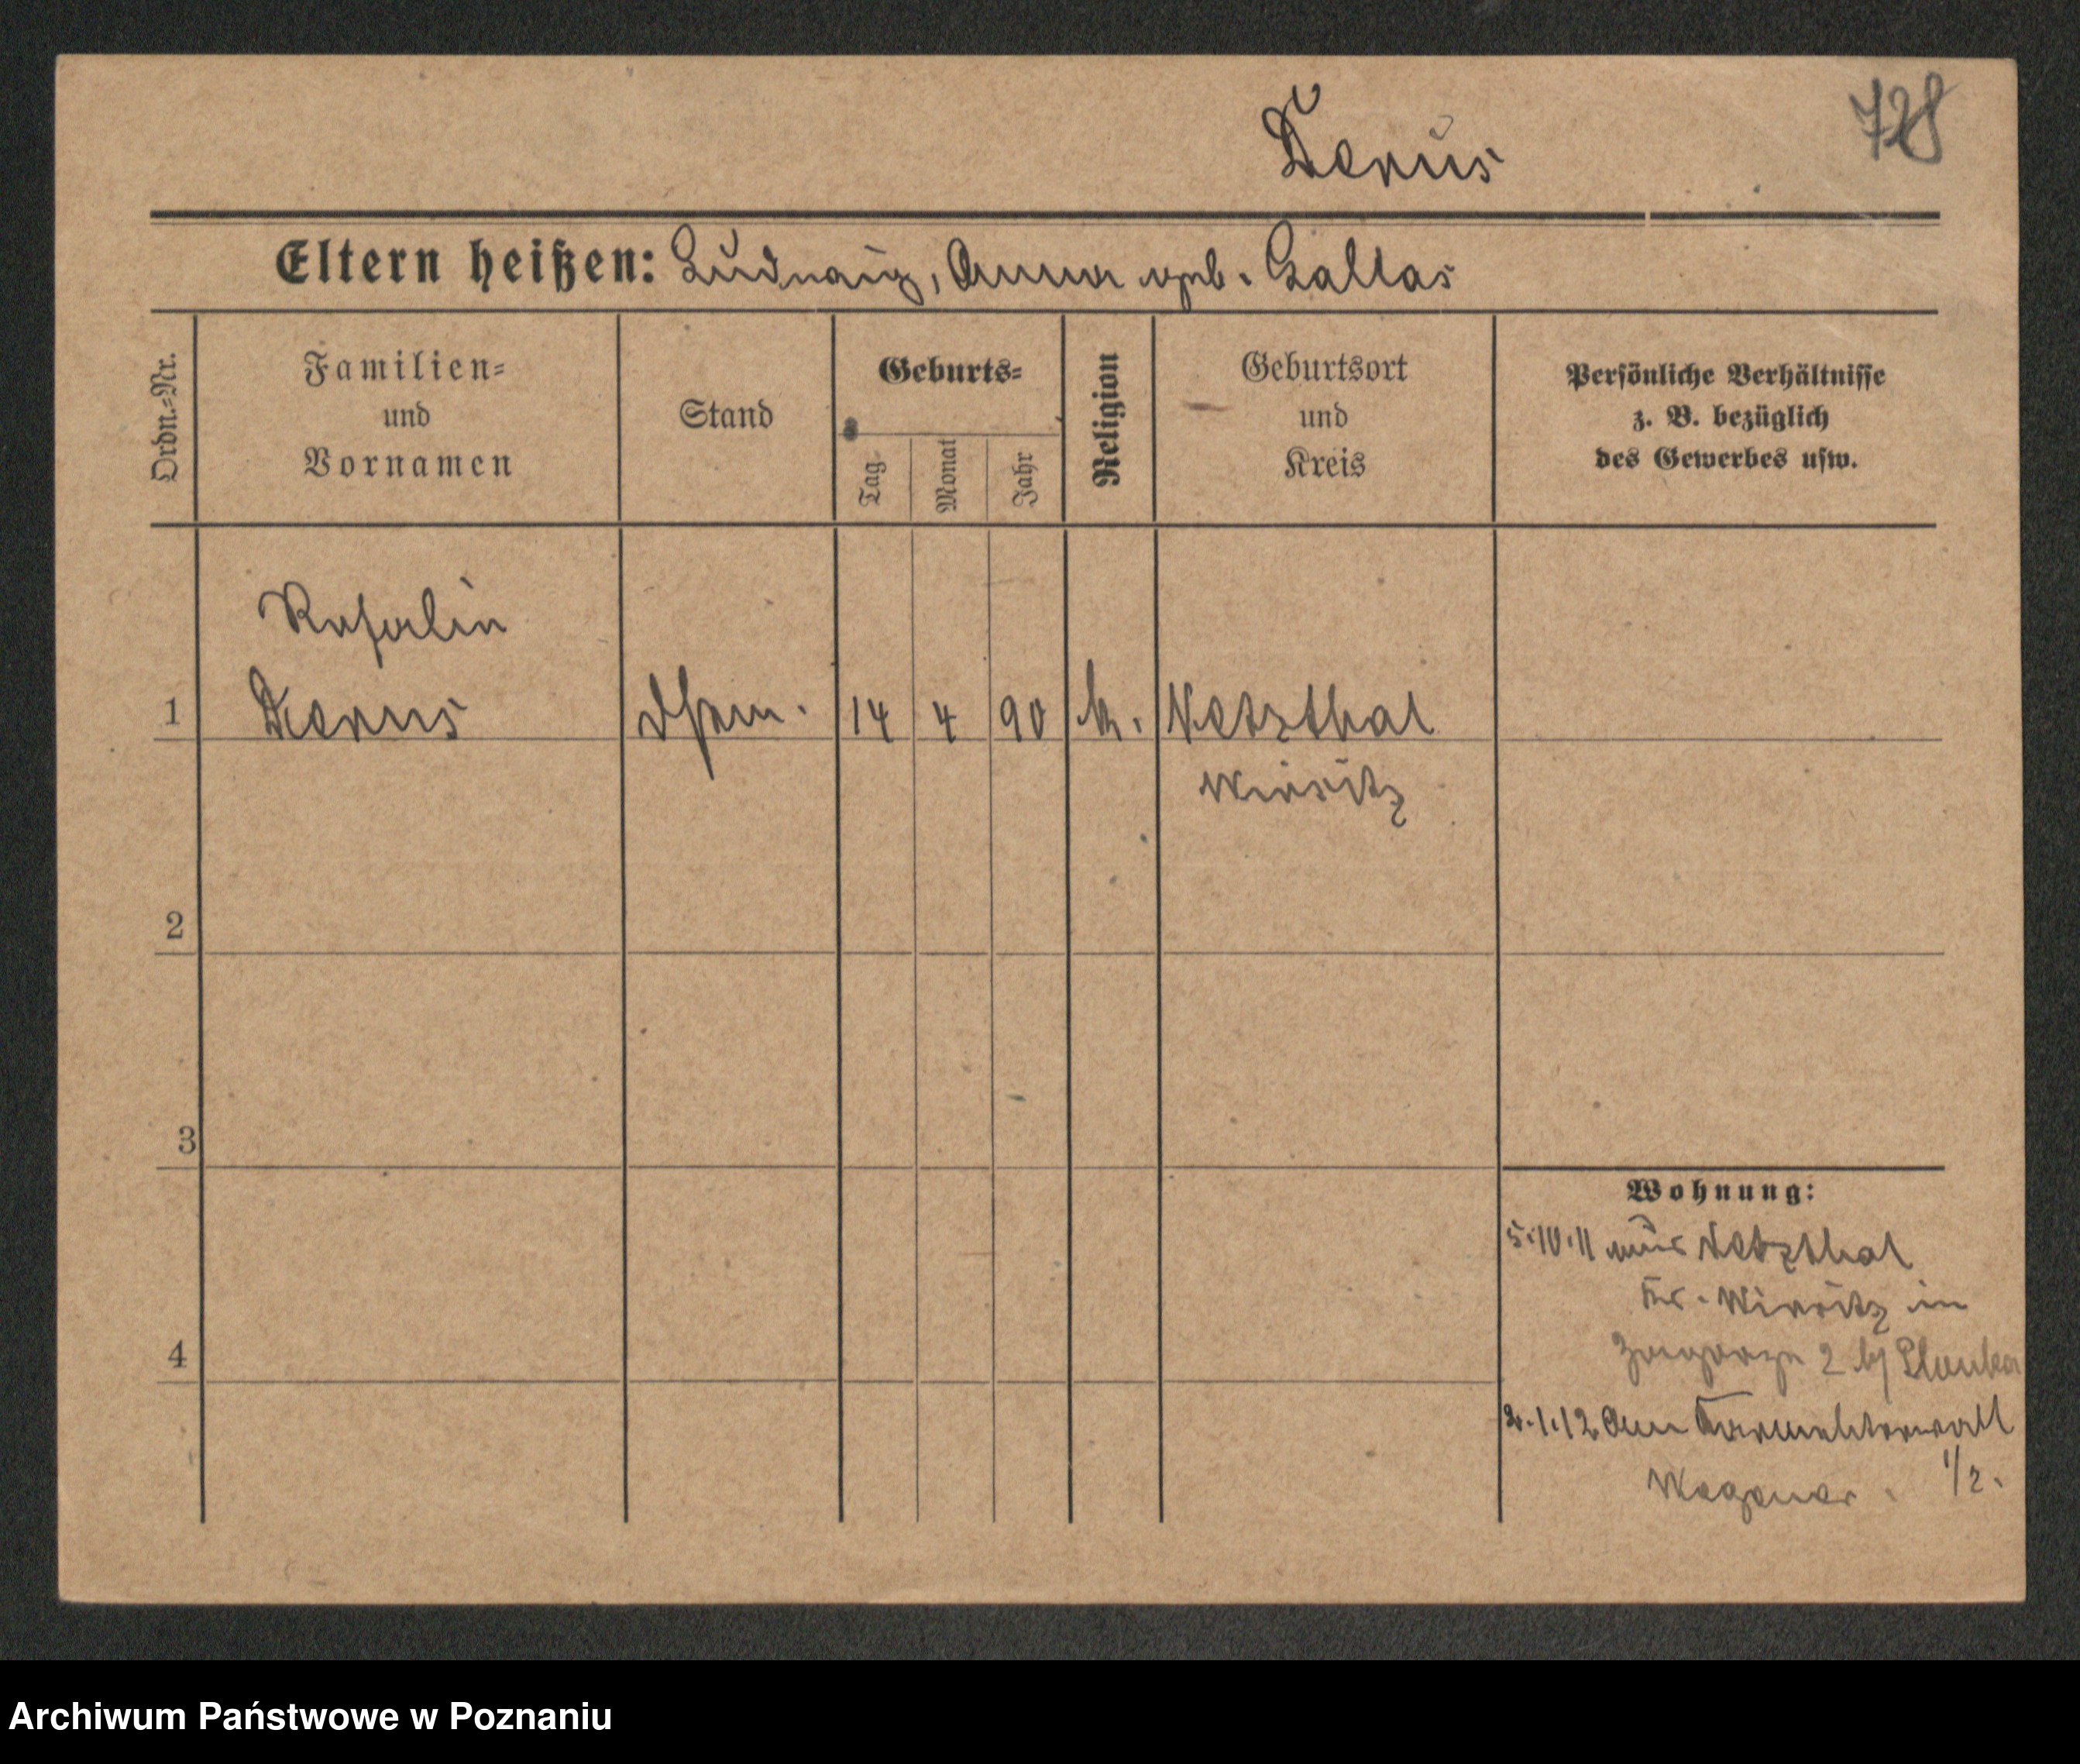 728
Derus
Eltern heißen: Ludwig, Anna geb. Gallas
Ordn.-Nr.
Familien-
und
Vornamen
Stand
Geburts-
Tag
Monat
Jahr
Religion
Geburtsort
und
Kreis
Persönliche Verhältnisse
z. B. bezüglich
des Gewerbes usw.
Rosalie
1 Derus 14 4 90 k. Netzthal
Wirsitz
2
3
Wohnung:
5.10.11 aus Netzthal
Kr. Wirsitz in
Zagorze 2 by
4
2.1.12 Am Karmeliterwall
1/2.
Wegener
Archiwum Państwowe w Poznaniu